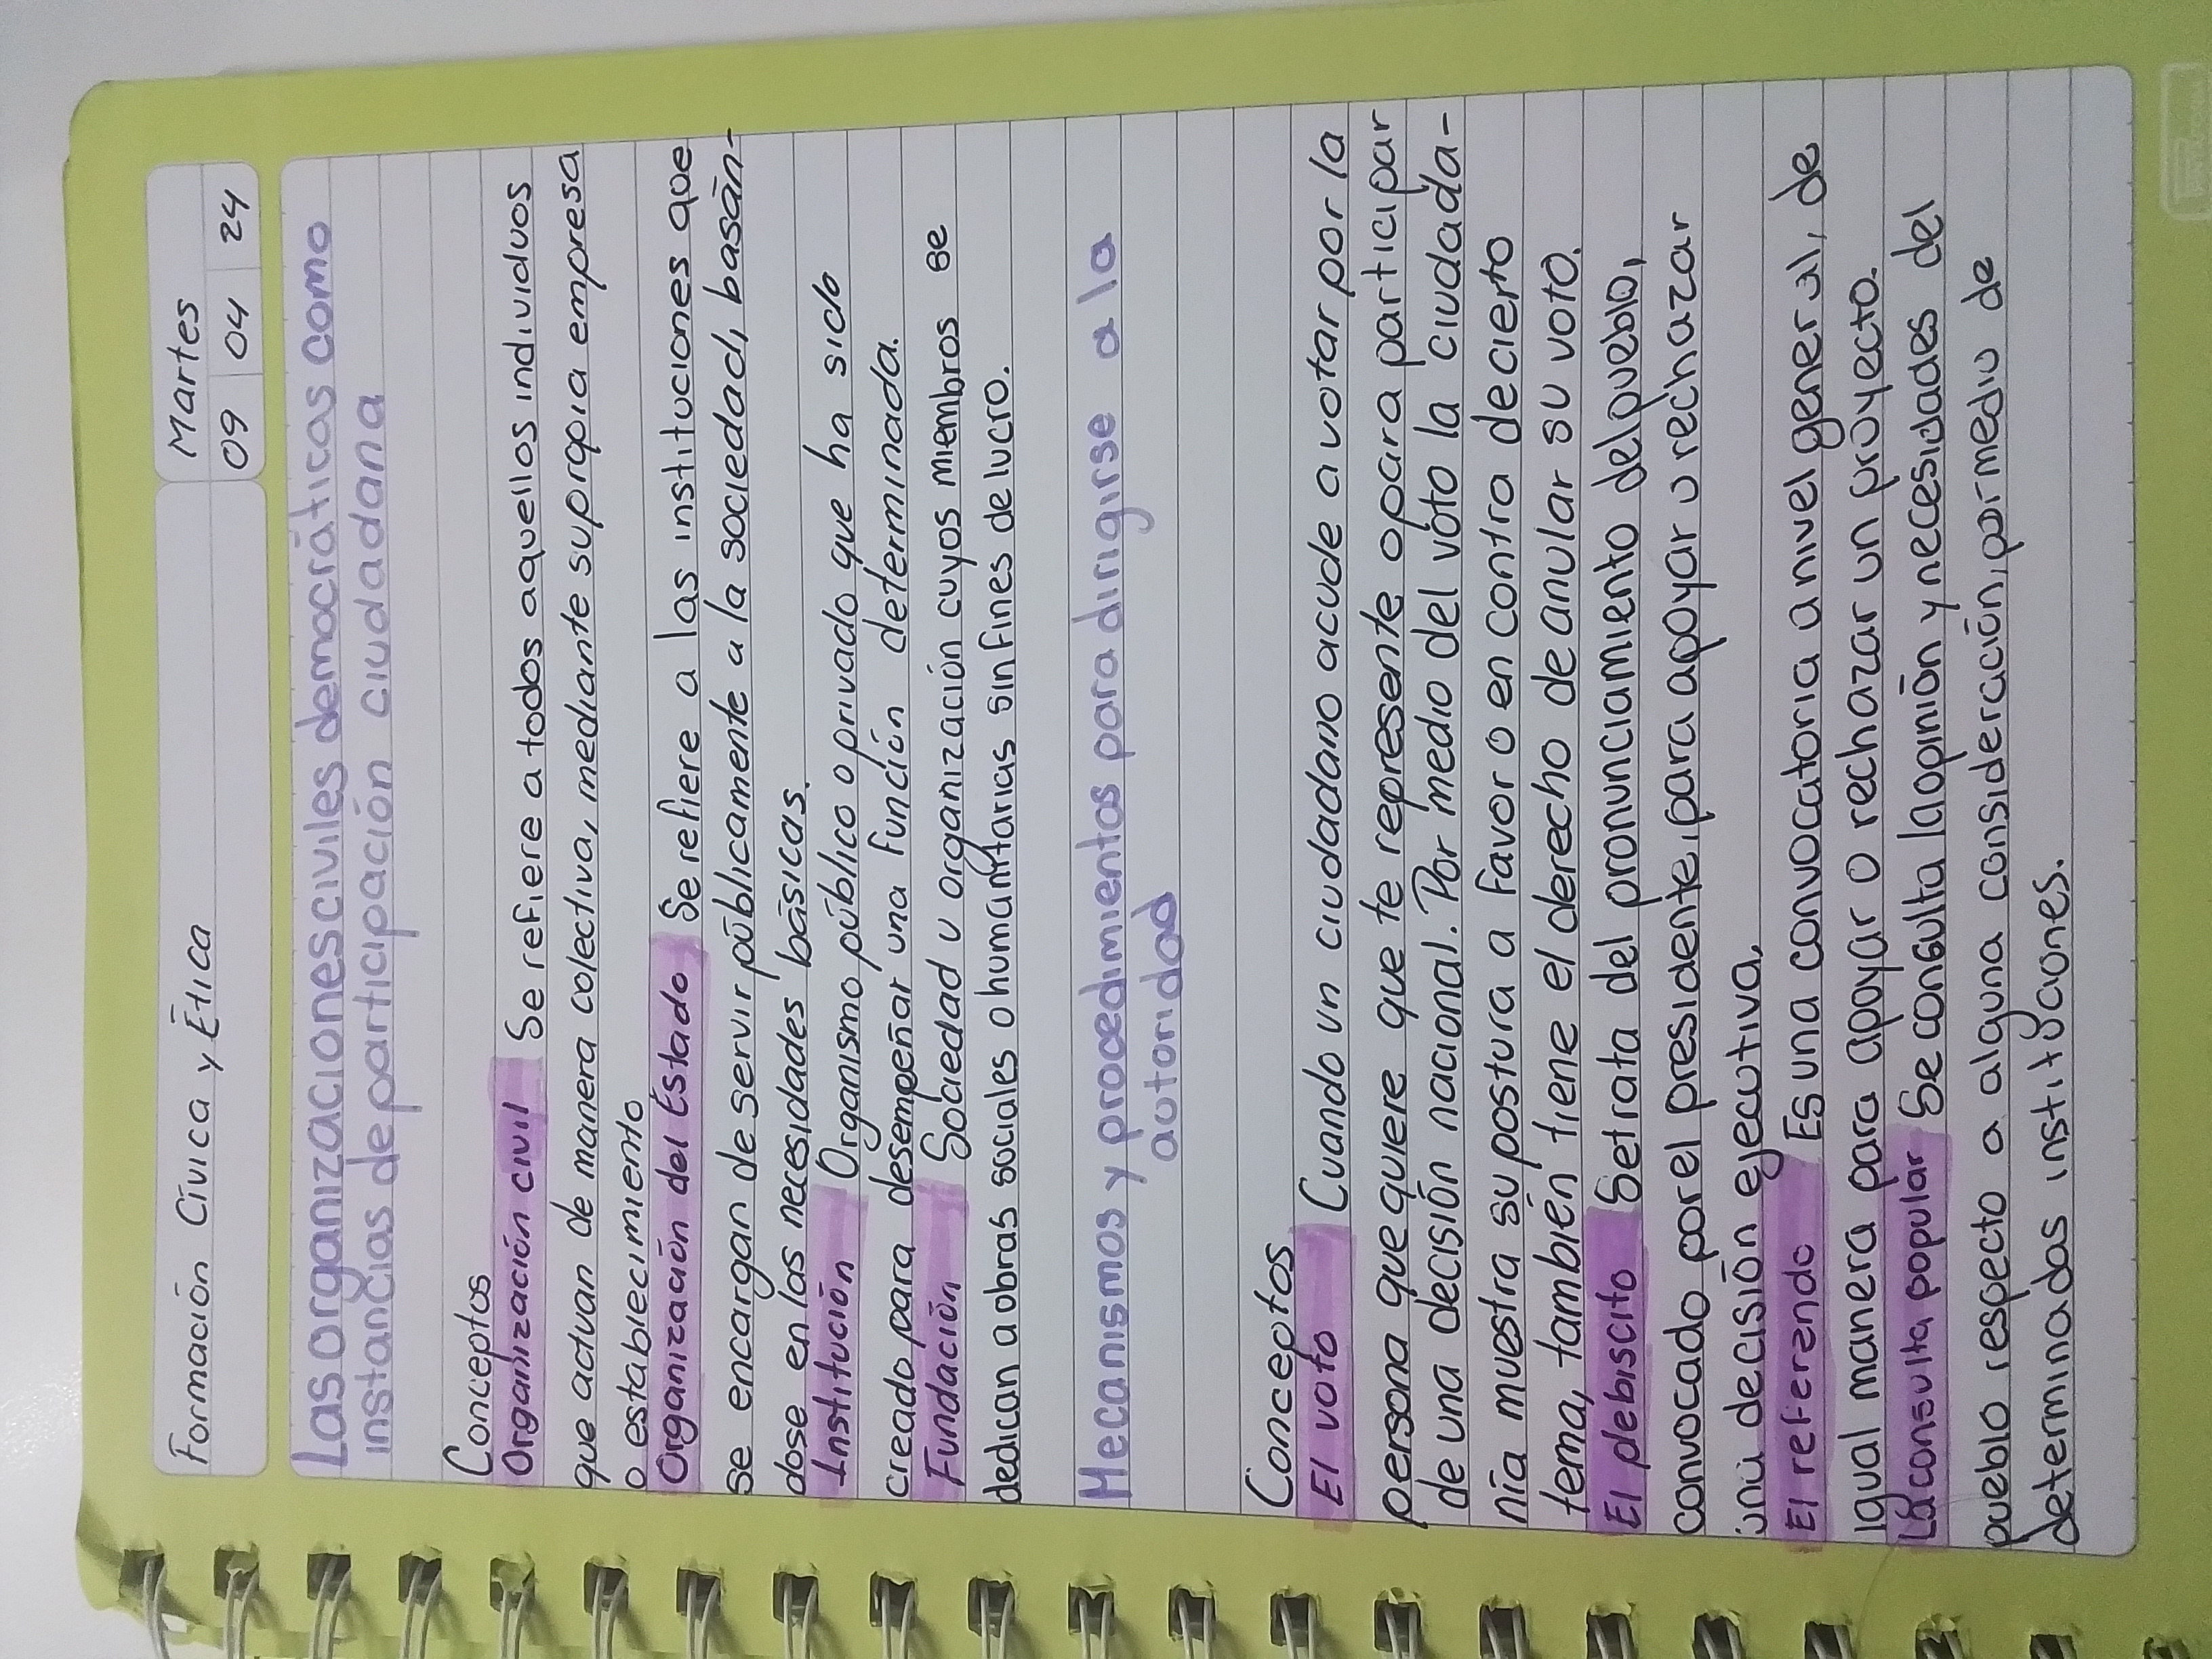 Formación Cívica y Ética
Martes
09 04 24
Las organizaciones civiles democráticas como
instancias de participación ciudadana
Conceptos
Organización civil Se refiere a todos aquellos individuos
que actuan de manera colectiva, mediante su propia empresa
o establecimiento
Organización del Estado Se refiere a las instituciones que
se encargan de servir públicamente a la sociedad, basán-
dose en las necesidades básicas.
Institución Organismo público o privado que ha sido
creado para desempeñar una función determinada.
Fundación Sociedad u organización cuyos miembros se
dedican a obras sociales o humanitarias sin fines de lucro.
Mecanismos y procedimientos para dirigirse a la
autoridad
Conceptos
El voto Cuando un ciudadano acude a votar por la
persona que quiere que te represente o para participar
de una decisión nacional. Por medio del voto la ciudada-
nía muestra su postura a favor o en contra de cierto
tema, también tiene el derecho de anular su voto.
El plebiscito Se trata del pronunciamiento del pueblo,
convocado por el presidente, para apoyar o rechazar
una decisión ejecutiva.
El referendo Es una convocatoria a nivel general, de
igual manera para apoyar o rechazar un proyecto.
La consulta popular Se consulta la opinión y necesidades del
pueblo respecto a alguna consideración, por medio de
determinadas instituciones.